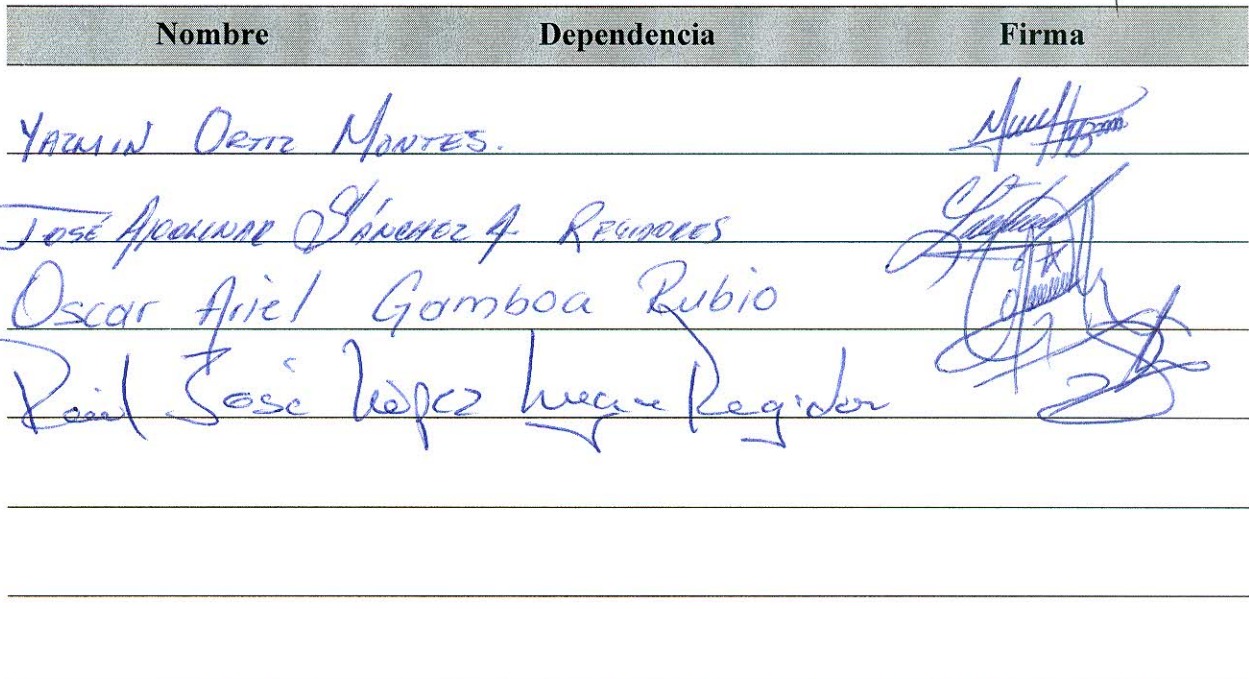 Nombre Dependencia Firma
YAZMIN ORTIZ MONTES.
JOSÉ APOLINAR SÁNCHEZ A. REGIDORES
Oscar Ariel Gamboa Rubio
Raúl José López Regidor